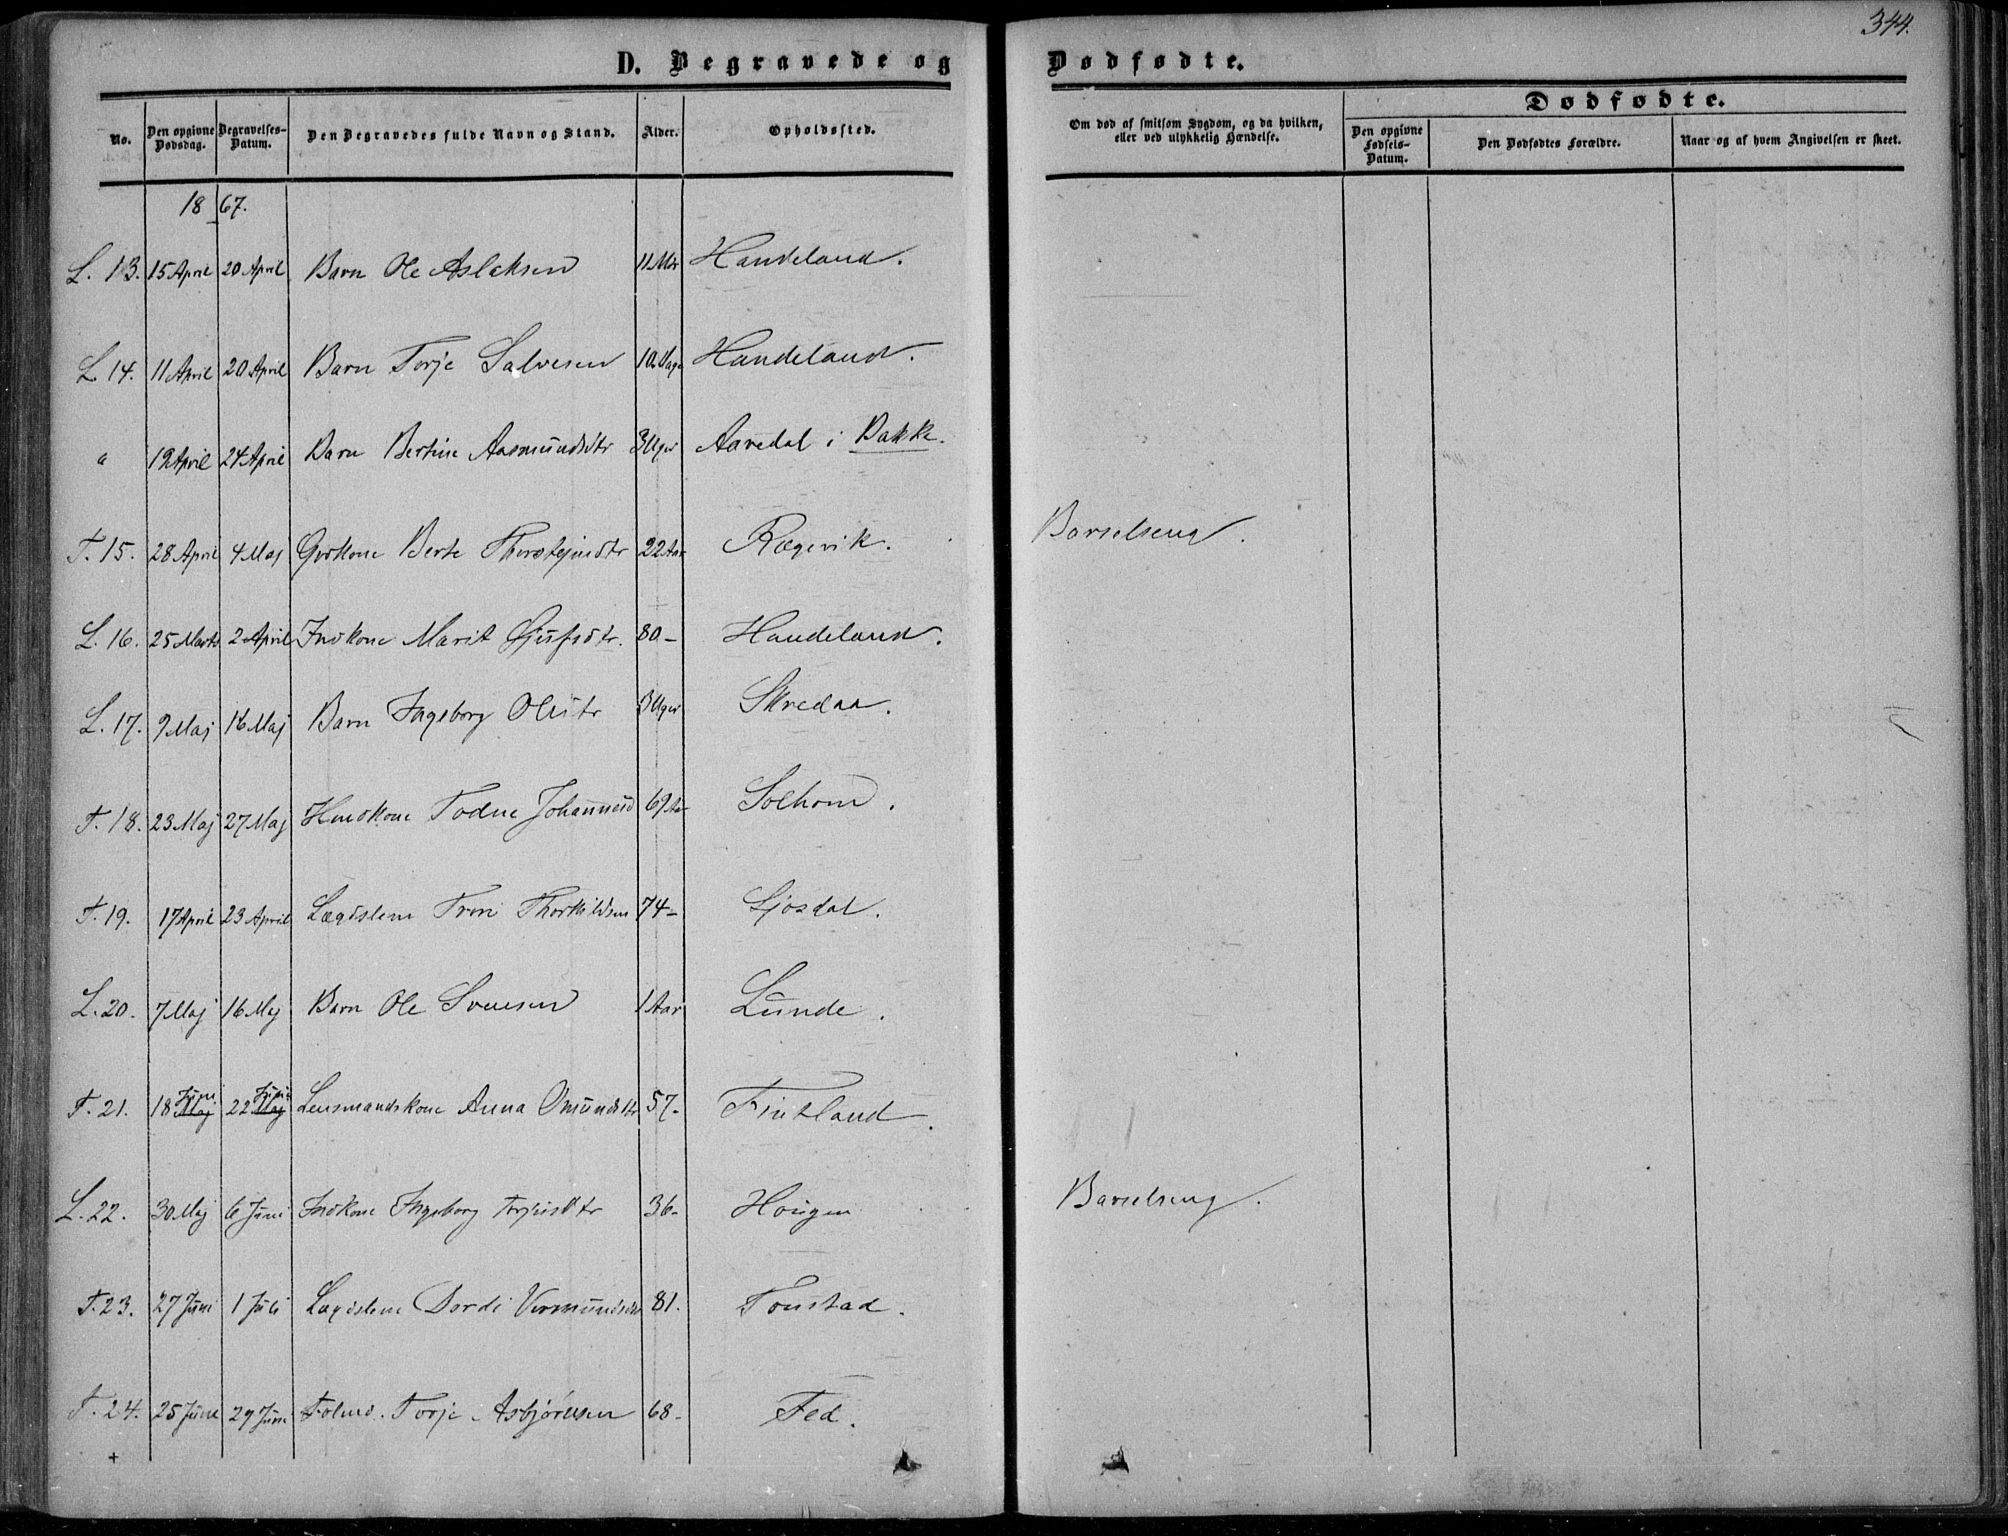 344.
D. Begravede og Dødfødte.
No.
Den opgivne Dødsdag.
Begravelses-Datum.
Den Begravedes fulde Navn og Stand.
Alder.
Opholdssted.
Om død af smitsom Sygdom, og da hvilken, eller ved ulykkelig Hændelse.
Dødfødte.
Den opgivne Fødsels-Datum.
Den Dødfødtes Forældre.
Naar og af hvem Angivelsen er skeet.
1867.
L. 13. 15 April 20 April Barn Ole Aslaksen 11 Mdr Handeland.
L. 14. 11 April 20 April Barn Torje Salvesen 10 Dage Handeland.
" 19 April 24 April Barn Bertine Aasmundsdtr 3 Uger Aavedal i Bakke.
T. 15. 28 April 4 Maj Grdkone Berte Thorsteinsdtr 22 Aar Rægevik. Barselseng.
L. 16. 25 Marts 2 April Indkone Marit 80- Handeland.
L. 17. 9 Maj 16 Maj Barn Ingeborg Olsdtr 3 Uger Skredaa.
T. 18. 23 Maj 27 Maj Hmdkone Todne Johannesd 69 Aar Solhom.
T. 19. 17 April 23 April Lægdslem Tron Thorkildsen 74- Ljosdal.
L. 20. 7 Maj 16 Maj Barn Ole Svensen 1 Aar Lunde.
T. 21. 18 Maj Juni 22 Maj Juni Lensmandskone Anna Omundsdtr 57- Fintland.
L. 22. 30 Maj 6 Juni Indkone Ingeborg Torjusdtr 36- Hougen Barselseng.
T. 23. 27 Juni 1 Juli Lægdslem Dordi Vermundsdtr 81. Tonstad.
T. 24. 25 Juni 29 Juni Torje Asbjørnsen 68- Fed.
+